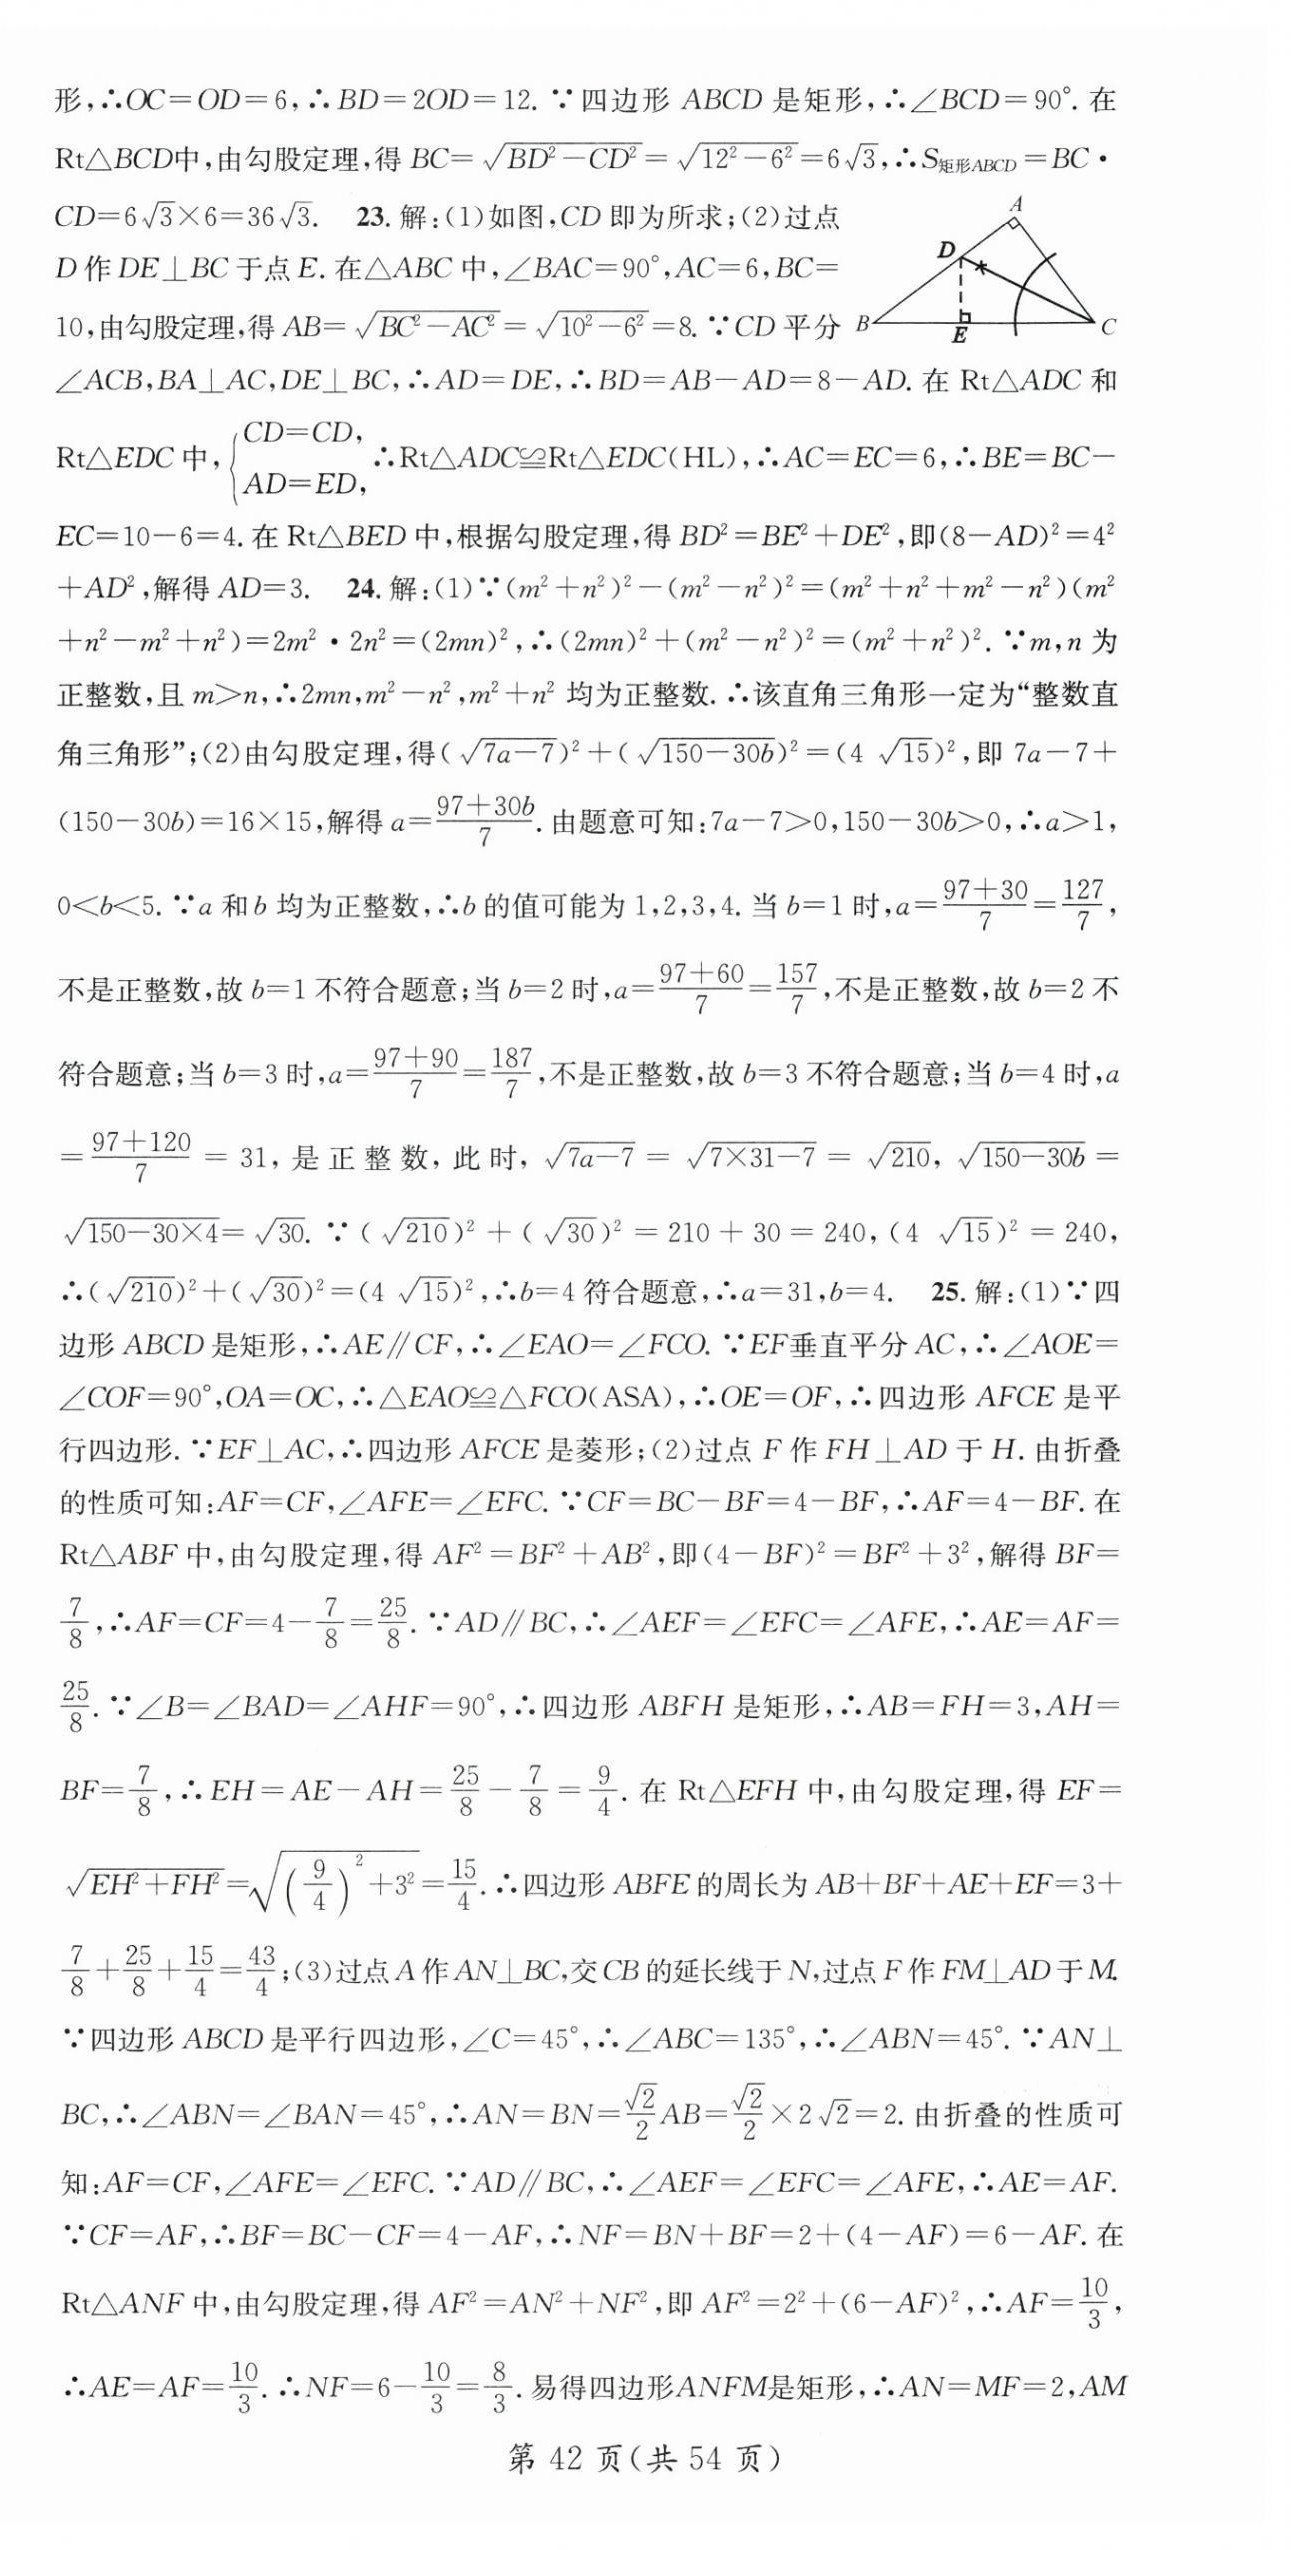 形,∴OC=OD=6,∴BD=2OD=12.∵四边形 ABCD 是矩形,∴∠BCD=90°.在
Rt△BCD中,由勾股定理,得 BC=√(BD²-CD²)=√(12²-6²)=6√3,∴S矩形ABCD=BC·
CD=6√3×6=36√3. 23.解:(1)如图,CD 即为所求;(2)过点
D 作 DE⊥BC 于点 E.在△ABC 中,∠BAC=90°,AC=6,BC=
10,由勾股定理,得 AB=√(BC²-AC²)=√(10²-6²)=8.∵CD 平分
A
D
B
E
C
∠ACB,BA⊥AC,DE⊥BC,∴AD=DE,∴BD=AB-AD=8-AD.在 Rt△ADC 和
Rt△EDC 中,{CD=CD, AD=ED, ∴Rt△ADC≌Rt△EDC(HL),∴AC=EC=6,∴BE=BC-
EC=10-6=4.在 Rt△BED 中,根据勾股定理,得 BD²=BE²+DE²,即(8-AD)²=4²
+AD²,解得 AD=3. 24.解:(1)∵(m²+n²)²-(m²-n²)²=(m²+n²+m²-n²)(m²
+n²-m²+n²)=2m²·2n²=(2mn)²,∴(2mn)²+(m²-n²)²=(m²+n²)².∵m,n 为
正整数,且 m>n,∴2mn,m²-n²,m²+n² 均为正整数.∴该直角三角形一定为“整数直
角三角形”;(2)由勾股定理,得(√(7a-7))²+(√(150-30b))²=(4√15)²,即 7a-7+
(150-30b)=16×15,解得 a=(97+30b)/7.由题意可知:7a-7>0,150-30b>0,∴a>1,
0<b<5.∵a 和 b 均为正整数,∴b 的值可能为 1,2,3,4.当 b=1 时,a=(97+30)/7=127/7,
不是正整数,故 b=1 不符合题意;当 b=2 时,a=(97+60)/7=157/7,不是正整数,故 b=2 不
符合题意;当 b=3 时,a=(97+90)/7=187/7,不是正整数,故 b=3 不符合题意;当 b=4 时,a
=(97+120)/7=31,是正整数,此时,√(7a-7)=√(7×31-7)=√210,√(150-30b)=
√(150-30×4)=√30.∵(√210)²+(√30)²=210+30=240,(4√15)²=240,
∴(√210)²+(√30)²=(4√15)²,∴b=4 符合题意,∴a=31,b=4. 25.解:(1)∵四
边形 ABCD 是矩形,∴AE∥CF,∴∠EAO=∠FCO.∵EF垂直平分 AC,∴∠AOE=
∠COF=90°,OA=OC,∴△EAO≌△FCO(ASA),∴OE=OF,∴四边形 AFCE 是平
行四边形.∵EF⊥AC,∴四边形 AFCE 是菱形;(2)过点 F 作 FH⊥AD 于 H.由折叠
的性质可知:AF=CF,∠AFE=∠EFC.∵CF=BC-BF=4-BF,∴AF=4-BF.在
Rt△ABF 中,由勾股定理,得 AF²=BF²+AB²,即(4-BF)²=BF²+3²,解得 BF=
7/8,∴AF=CF=4-7/8=25/8.∵AD∥BC,∴∠AEF=∠EFC=∠AFE,∴AE=AF=
25/8.∵∠B=∠BAD=∠AHF=90°,∴四边形 ABFH 是矩形,∴AB=FH=3,AH=
BF=7/8,∴EH=AE-AH=25/8-7/8=9/4.在 Rt△EFH 中,由勾股定理,得 EF=
√(EH²+FH²)=√((9/4)²+3²)=15/4.∴四边形 ABFE 的周长为 AB+BF+AE+EF=3+
7/8+25/8+15/4=43/4;(3)过点 A 作 AN⊥BC,交 CB 的延长线于 N,过点 F 作 FM⊥AD 于 M.
∵四边形 ABCD 是平行四边形,∠C=45°,∴∠ABC=135°,∴∠ABN=45°.∵AN⊥
BC,∴∠ABN=∠BAN=45°,∴AN=BN=√2/2AB=√2/2×2√2=2.由折叠的性质可
知:AF=CF,∠AFE=∠EFC.∵AD∥BC,∴∠AEF=∠EFC=∠AFE,∴AE=AF.
∵CF=AF,∴BF=BC-CF=4-AF,∴NF=BN+BF=2+(4-AF)=6-AF.在
Rt△ANF 中,由勾股定理,得 AF²=AN²+NF²,即 AF²=2²+(6-AF)²,∴AF=10/3,
∴AE=AF=10/3.∴NF=6-10/3=8/3.易得四边形ANFM是矩形,∴AN=MF=2,AM
第 42 页(共 54 页)